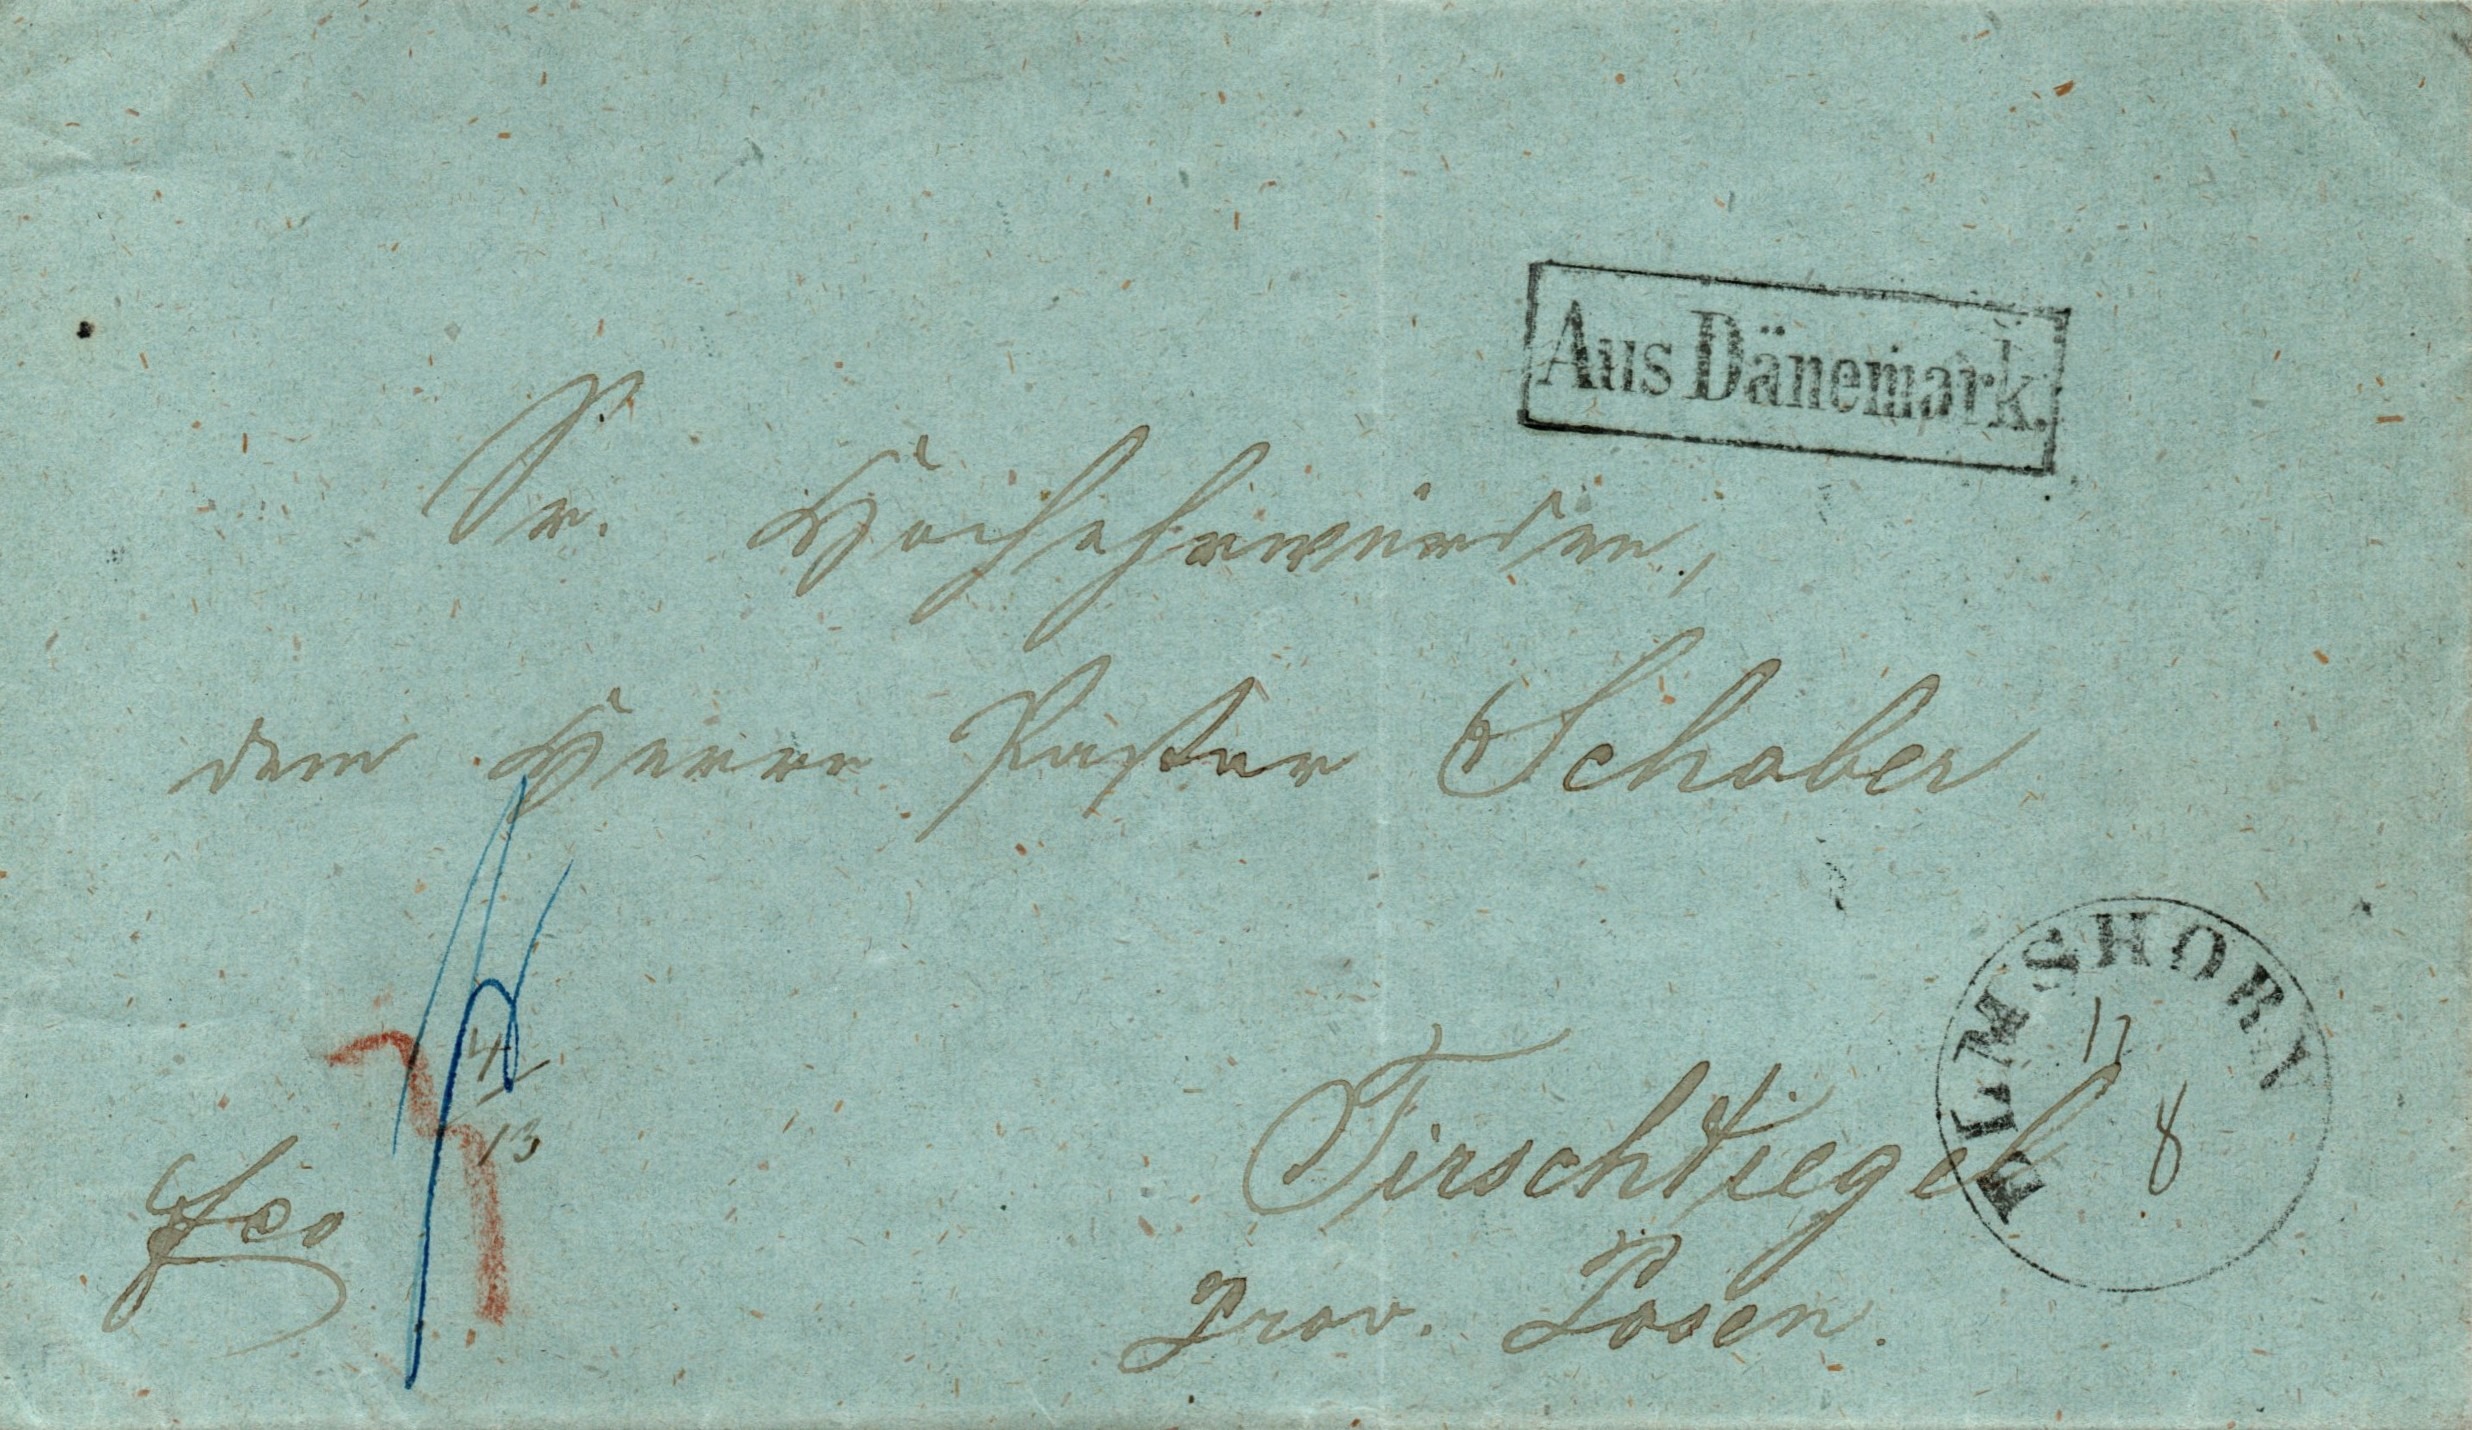 Aus Dänemark.
Sr. Hochehrwürden,
dem Herrn Pastor Schober
4
13
fco
ELMSHORN
17
8
Tirschtiegel
Prov. Posen.